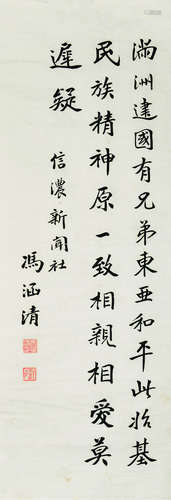 満洲建國有兄弟東亜和平此始基
民族精神原一致相親相愛莫
遲疑
信濃新聞社
馮涵清